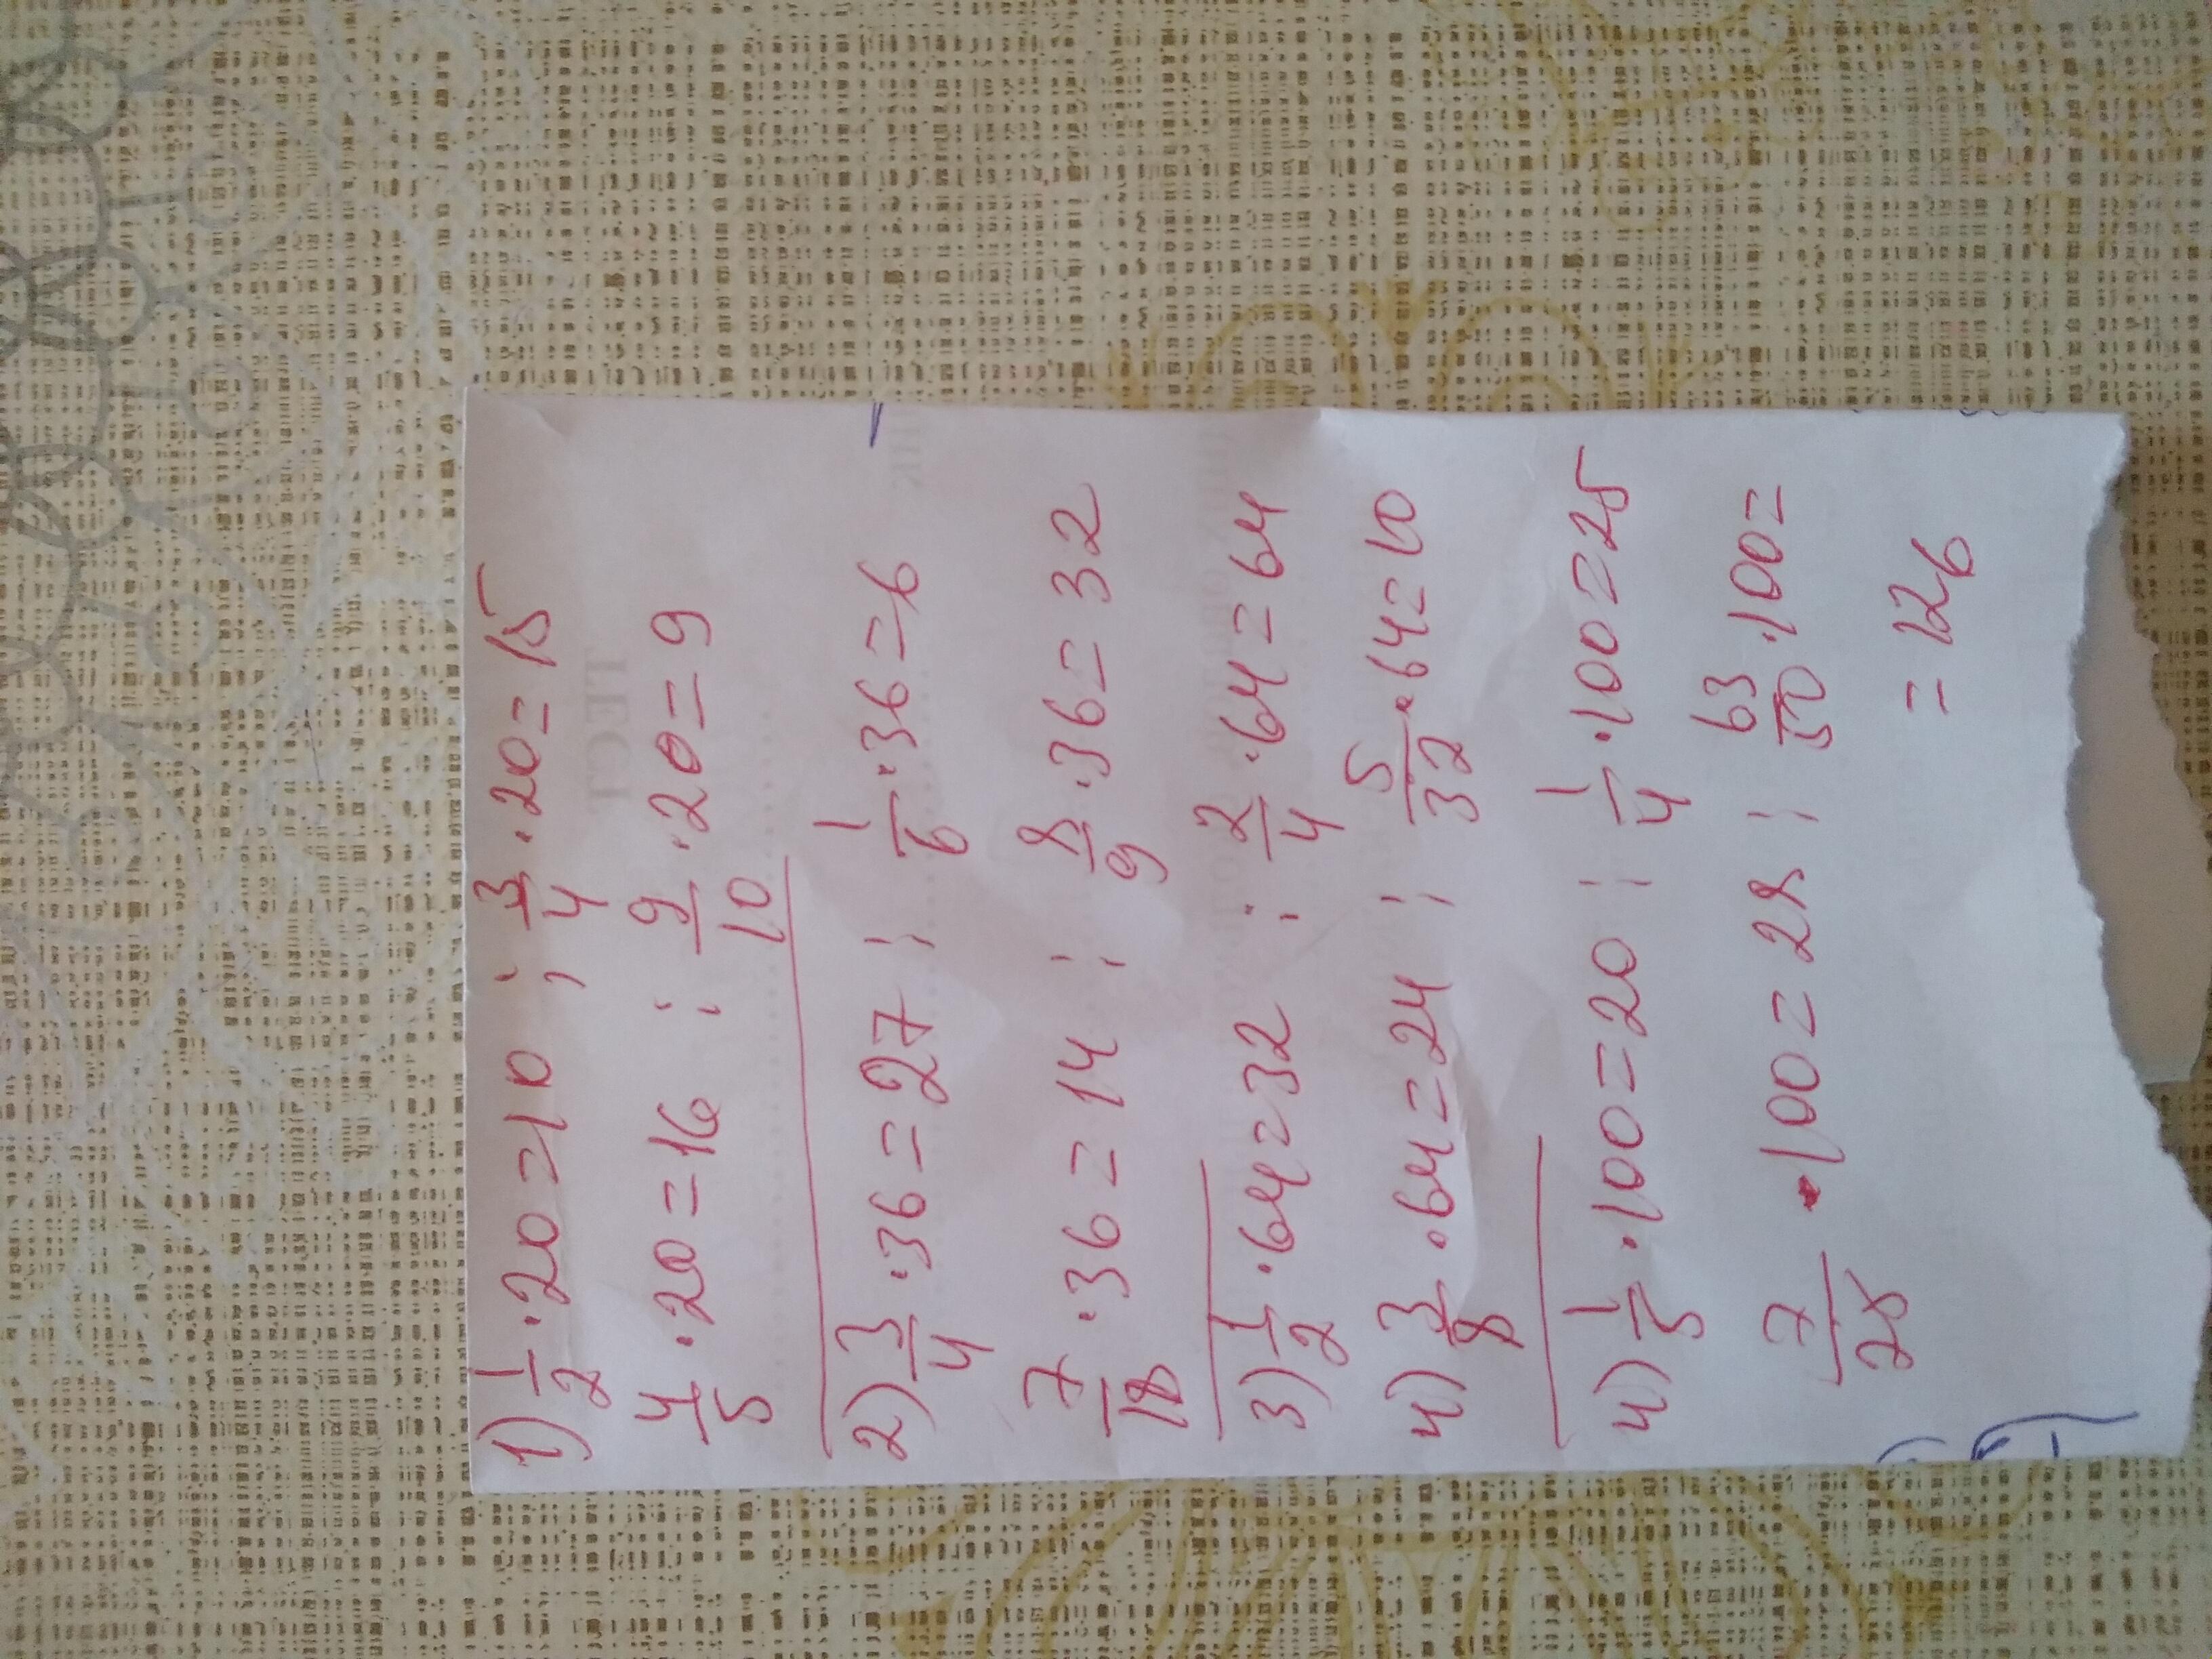 1) 1/2 · 20 = 10 ; 3/4 · 20 = 15
4/5 · 20 = 16 ; 9/10 · 20 = 9
2) 3/4 · 36 = 27 ; 1/6 · 36 = 6
7/18 · 36 = 14 ; 8/9 · 36 = 32
3) 1/2 · 64 = 32 ; 2/4 · 64 = 64
4) 3/8 · 64 = 24 ; 5/32 · 64 = 10
4) 1/5 · 100 = 20 ; 1/4 · 100 = 25
7/25 · 100 = 28 ; 63/50 · 100 =
= 126
ТЕСТ